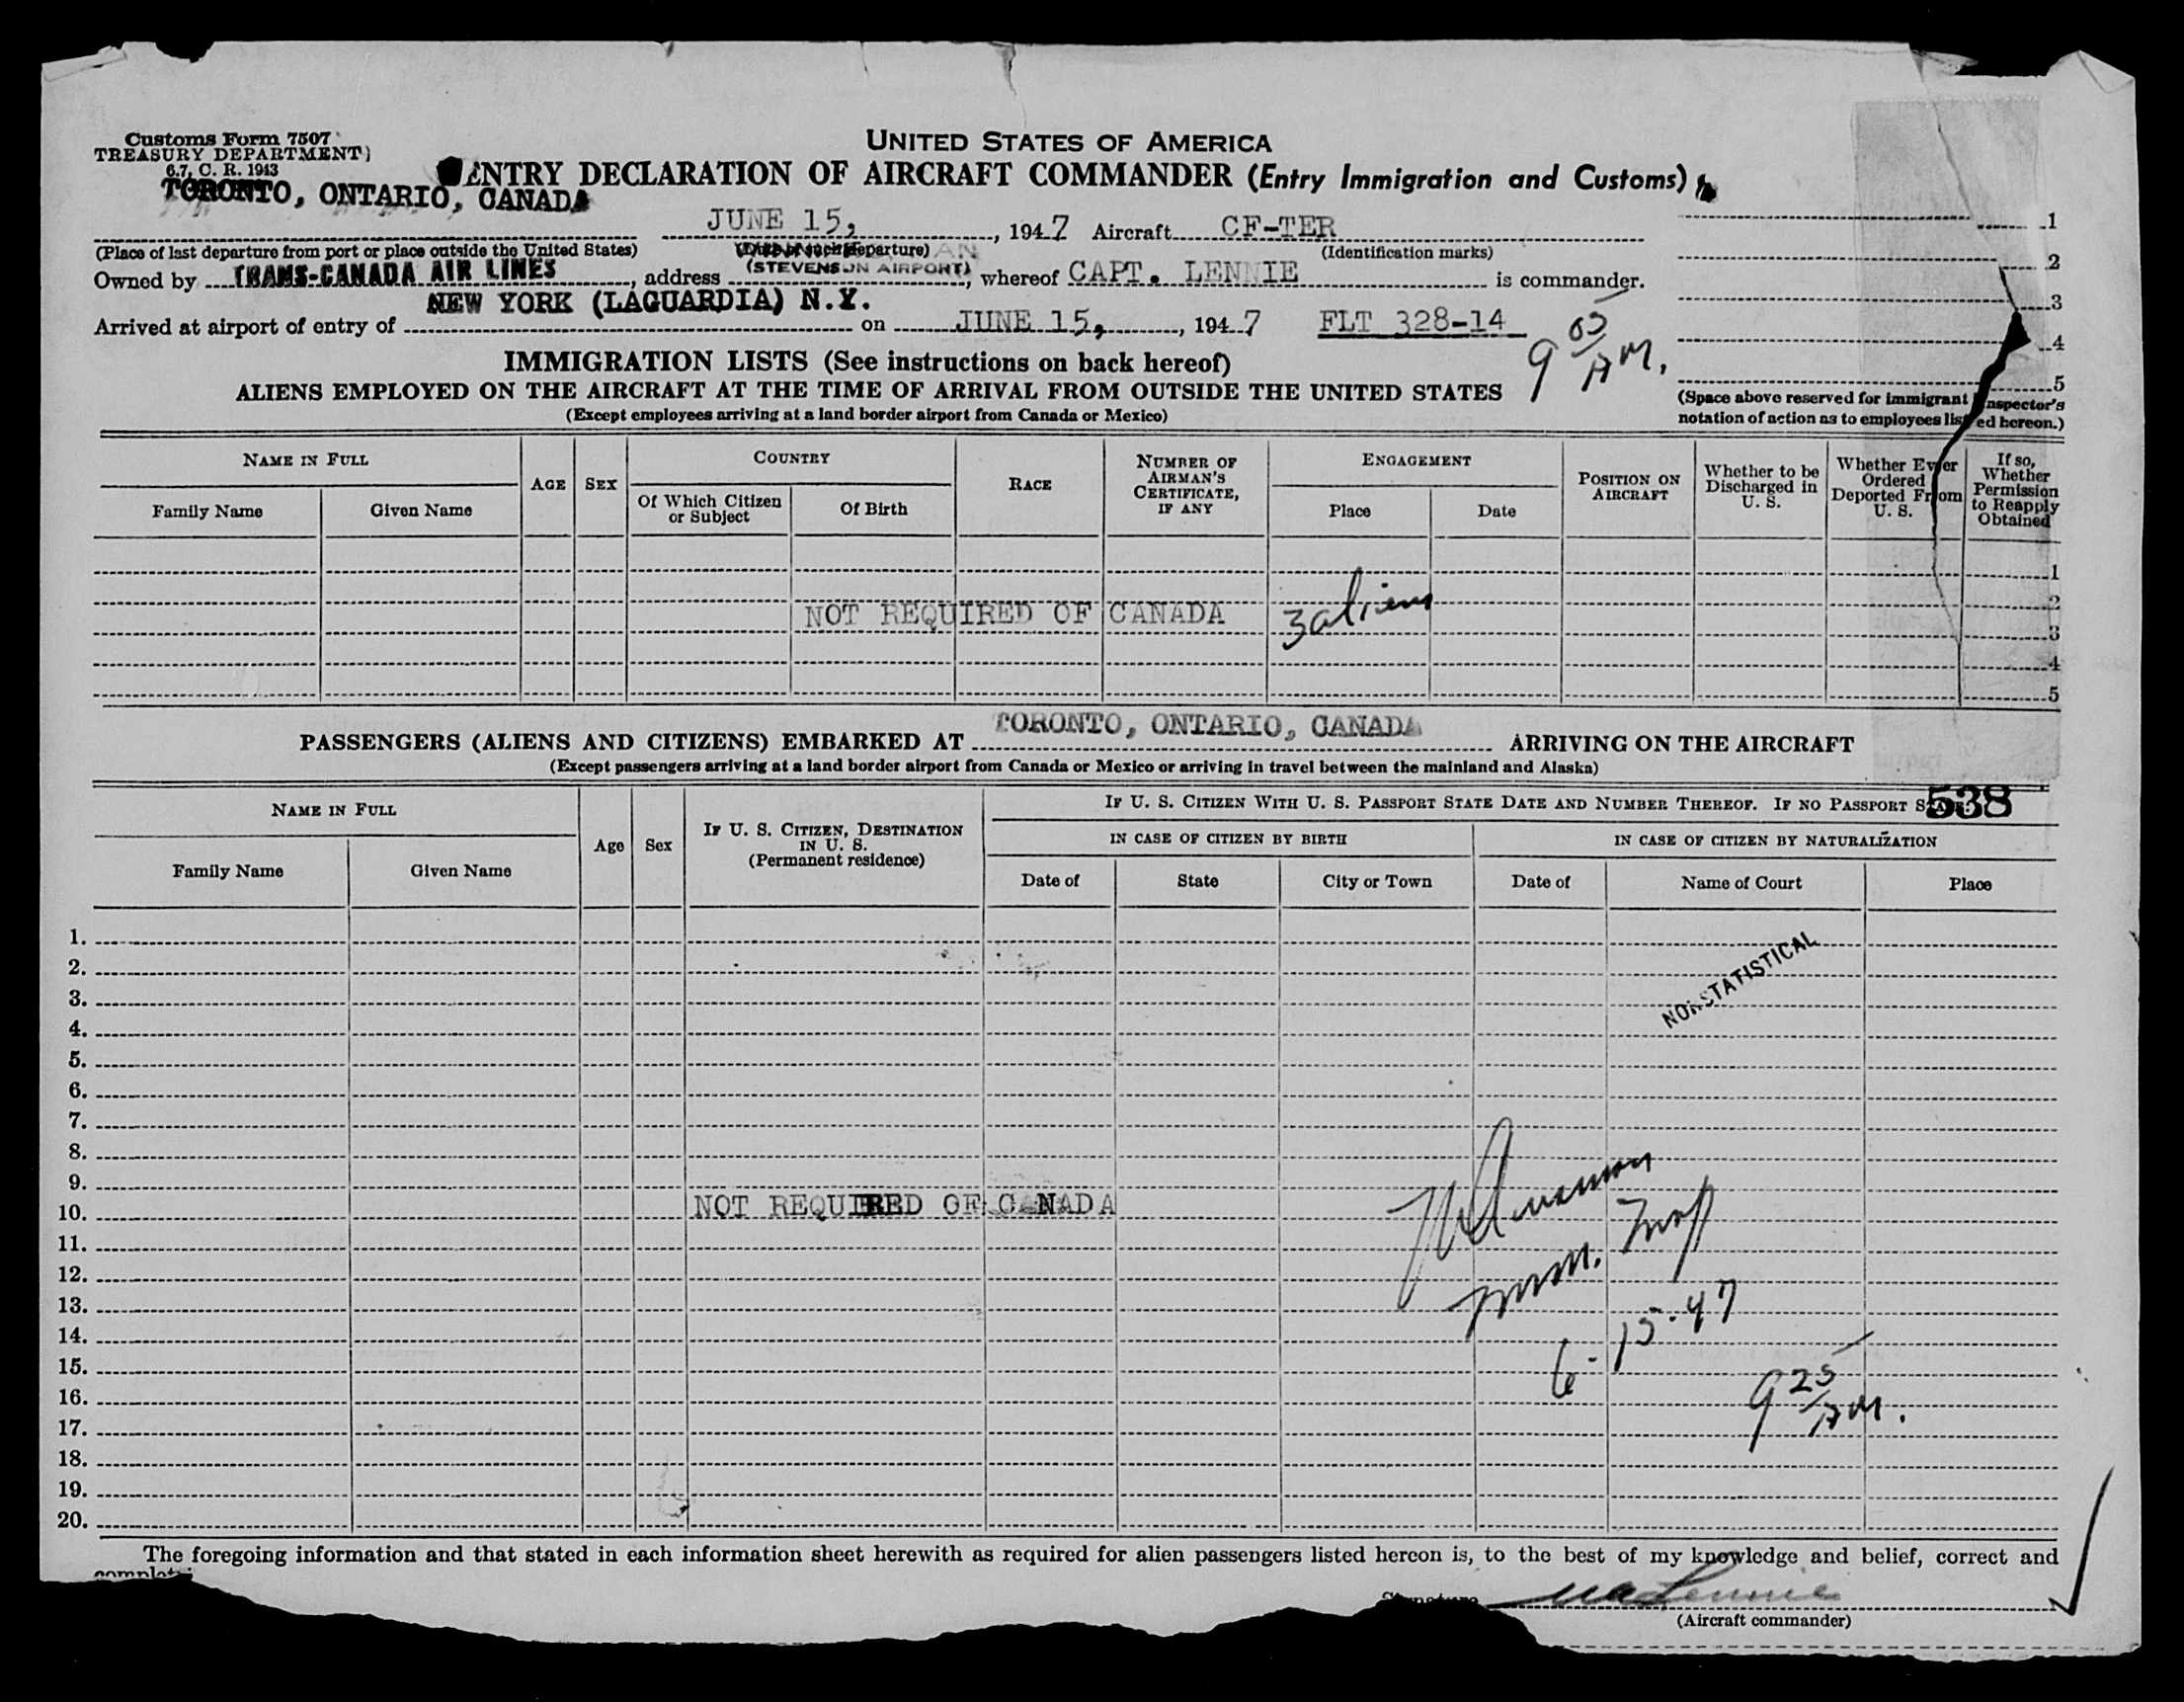 Customs Form 7507
TREASURY DEPARTMENT
6.7, C. R. 1943
UNITED STATES OF AMERICA
ENTRY DECLARATION OF AIRCRAFT COMMANDER (Entry Immigration and Customs)
TORONTO, ONTARIO, CANADA
JUNE 15, , 1947 Aircraft CF-TER
(Place of last departure from port or place outside the United States) (Date of such departure) (Identification marks)
Owned by TRANS-CANADA AIR LINES, address (STEVENSON AIRPORT), whereof CAPT. LENNIE is commander.
NEW YORK (LAGUARDIA) N.Y.
Arrived at airport of entry of on JUNE 15, , 1947 FLT 328-14
9 05 AM.
1
2
3
4
5
(Space above reserved for immigrant inspector's
notation of action as to employees listed hereon.)
IMMIGRATION LISTS (See instructions on back hereof)
ALIENS EMPLOYED ON THE AIRCRAFT AT THE TIME OF ARRIVAL FROM OUTSIDE THE UNITED STATES
(Except employees arriving at a land border airport from Canada or Mexico)
NAME IN FULL
Family Name
Given Name
AGE
SEX
COUNTRY
Of Which Citizen or Subject
Of Birth
RACE
NUMBER OF AIRMAN'S CERTIFICATE, IF ANY
ENGAGEMENT
Place
Date
POSITION ON AIRCRAFT
Whether to be Discharged in U. S.
Whether Ever Ordered Deported From U. S.
If so, Whether Permission to Reapply Obtained
1
2
NOT REQUIRED OF CANADA 3 aliens
3
4
5
TORONTO, ONTARIO, CANADA
PASSENGERS (ALIENS AND CITIZENS) EMBARKED AT ARRIVING ON THE AIRCRAFT
(Except passengers arriving at a land border airport from Canada or Mexico or arriving in travel between the mainland and Alaska)
NAME IN FULL
Family Name
Given Name
Age
Sex
IF U. S. CITIZEN, DESTINATION IN U. S.
(Permanent residence)
IF U. S. CITIZEN WITH U. S. PASSPORT STATE DATE AND NUMBER THEREOF. IF NO PASSPORT
538
IN CASE OF CITIZEN BY BIRTH
IN CASE OF CITIZEN BY NATURALIZATION
Date of
State
City or Town
Date of
Name of Court
Place
1.
2.
NONSTATISTICAL
3.
4.
5.
6.
7.
8.
9.
10. NOT REQUIRED OF CANADA
11.
12.
13.
14.
6-15-47
15.
16.
9 25 AM.
17.
18.
19.
20.
The foregoing information and that stated in each information sheet herewith as required for alien passengers listed hereon is, to the best of my knowledge and belief, correct and
Signature Lennie
(Aircraft commander)